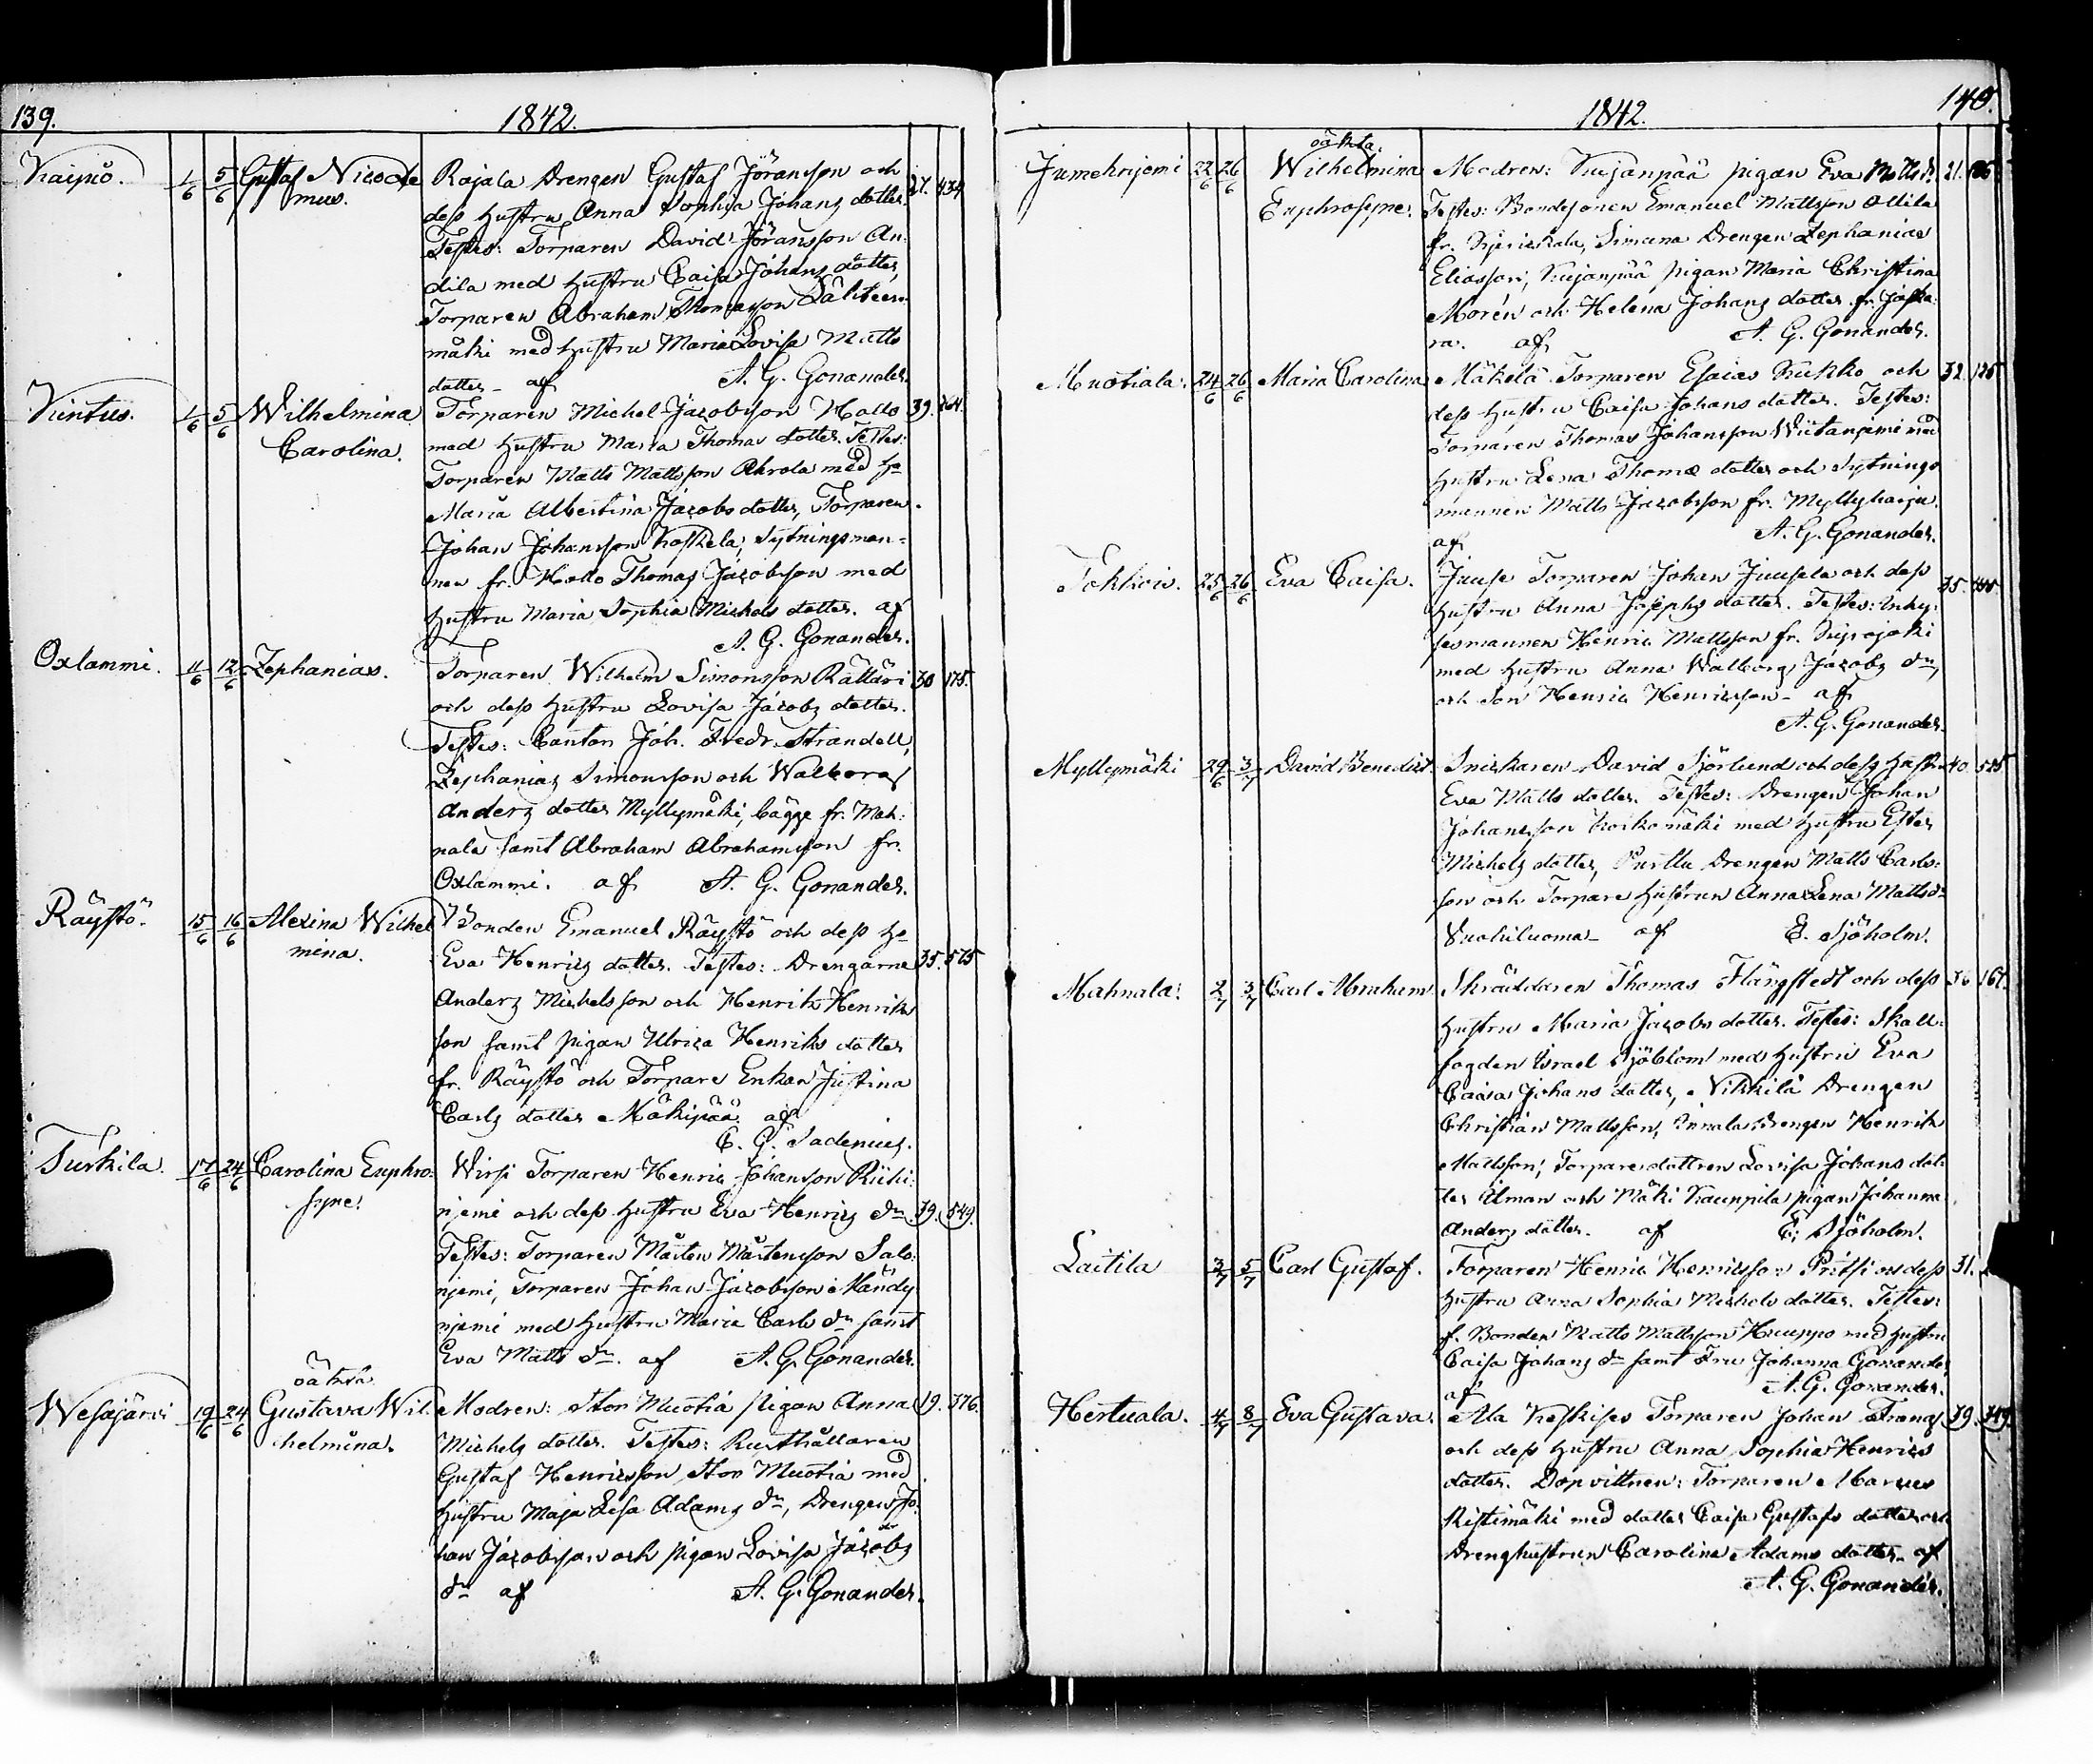 139. 1842.
Kaipio. 1/6 5/6 Gustaf Nicode Rajala Drengen Gustaf Jöransson och 27. 434
mus. dess hustru Anna Sophia Johans dotter.
Testes: Torparen David Jöransson An:
dila med hustru Caisa Johans dotter,
Torparen Abraham Thomasson Lähteen:
mäki med hustru Maria Lovisa Matts
dotter – af A. G. Gonander.
1/6 5/6 Wilhelmina Torparen Michel Jacobsson Hollo 39.
Carolina. med hustru Maria Thomas dotter. Testes:
Torparen Matts Mattsson Ahrola med ho
Maria Albertina Jacobs dotter, Torparen
Johan Johansson Koskela, Sytningsman=
nen fr. Hollo Thomas Jacobsson med
hustru Maria Sophia Michels dotter. af
A. G. Gonander.
Oxlammi. 11/6 12/6 Zephanias. Torparen Wilhelm Simonsson Rättäri 30 175.
och dess hustru Lovisa Jacobs dotter.
Testes: Cantor Joh. Fredr. Strandell,
Zephanias Simonsson och Walborg
Anders dotter Myllymäki, bägge fr. Mah:
nala samt Abraham Abrahamsson fr.
Oxlammi. af A. G. Gonander.
Räystö. 15/6 16/6 Alexina Wilhel Bonden Emanuel Räystö och dess ho
mina. Eva Henrics dotter. Testes: Drengarne 35. 575
Anders Michelsson och Henrik Henriks
son samt pigan Ulrica Henriks dotter
fr. Räystö och Torpare Enkan Justina
Carls dotter Mäkipää. af
C. G. Sadenius.
Turkila. 17/6 24/6 Carolina Euphro: Wirsi Torparen Henric Johansson Riihi:
syne. njemi och dess hustru Eva Henrics dr. 39. 549.
Testes: Torparen Mårten Mårtensson Salo:
njemi, Torparen Johan Jacobsson Mändy
njemi med hustru Maria Carls dr samt
Eva Matts dr. af A. G. Gonander.
oäkta
Wesajärvi 19/6 24/6 Gustava Wil: Modren: Stor Muotia pigan Anna 19. 376.
helmina. Michels dotter. Testes: Rusthållaren
Gustaf Henricsson Stor Muotia med
hustru Maja Lisa Adams dr, Drengen Jo:
han Jacobsson och pigan Lovisa Jacobs
dr af A. G. Gonander.
1842. 140.
oäkta.
Jumehnjemi 22/6 26/6 Wilhelmina Modren: Kujanpää pigan Eva Matts d. 21.
Euphrosyne. Testes: Bondesonen Emanuel Mattsson Ollila
fr. Kjerickala, Simuna Drengen Zephanias
Eliasson, Kujanpää pigan Maria Christina
Morén och Helena Johans dotter fr. Jaska:
ra. af A. G. Gonander.
Muotiala. 24/6 26/6 Maria Carolina Mäkelä Torparen Esaias Kukko och 32.
dess hustru Caisa Johans dotter. Testes:
Torparen Thomas Johansson Wiitanjemi med
hustru Lena Thomæ dotter och Sytnings
mannen Matts Jacobsson fr. Myllyharju.
af A. G. Gonander.
25/6 26/6 Eva Caisa. Juuse Torparen Johan Juusela och dess 35.
hustru Anna Josephs dotter. Testes: Inhy:
sesmannen Henric Mattsson fr.
med hustru Anna Walborg Jacobs dr,
och son Henric Henricsson – af
A. G. Gonander.
Myllymäki 29/6 3/7 David Benedict. Snickaren David Sjörlund och dess hustru 40
Eva Matts dotter. Testes: Drengen Johan
Johansson Koskomäki med hustru Ester
Michels dotter, Drengen Matts Carls:
son och Torpare hustrun Anna Lena Matts d:
Suokiluoma – af E. Sjöholm.
Mahnala. 2/7 3/7 Carl Abraham Skräddaren Thomas Flängstedt och dess 36 167.
hustru Maria Jacobs dotter. Testes: Skall:
fogden Israel Sjöblom med hustru Eva
Caisa Johans dotter, Nikkilä Drengen
Christian Mattsson, Drengen Henrik
Mattsson, Torpare dottren Lovisa Johans dot
ter Alman och Mäki Kauppila pigan Johanna
Anders dotter. af E. Sjöholm.
Laitila 3/7 5/7 Carl Gustaf. Torparen Henric Henricsson Pritsi och dess 31.
hustru Anna Sophia Michels dotter. Testes:
f. Bonden Matts Mattsson Huuppo med hustru
Caisa Johans dr samt Fru Johanna Gonander,
af A. G. Gonander.
Hertuala. 4/7 8/7 Eva Gustava. Ala Keskises Torparen Johan Frans 39. 319.
och dess hustru Anna Sophia Henrics
dotter. Dopvittnen: Torparen Marcus
Ristimäki med dotter Caisa Gustafs dotter och
Dreng hustrun Carolina Adams dotter. af
A. G. Gonander.